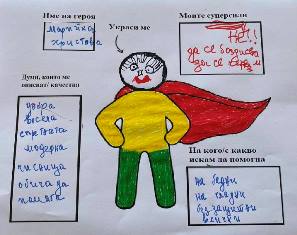 Име на героя
Марийка
Христова
Украси ме
Моите суперсили
НЕ!!
да се
да се
Думи, които ме
описват/ качества
добра
весела
стегната
модерна
чисница
обича да
помага
На кого/с какво
искам да помогна
на бедни
на гладни
беззащитни
всички